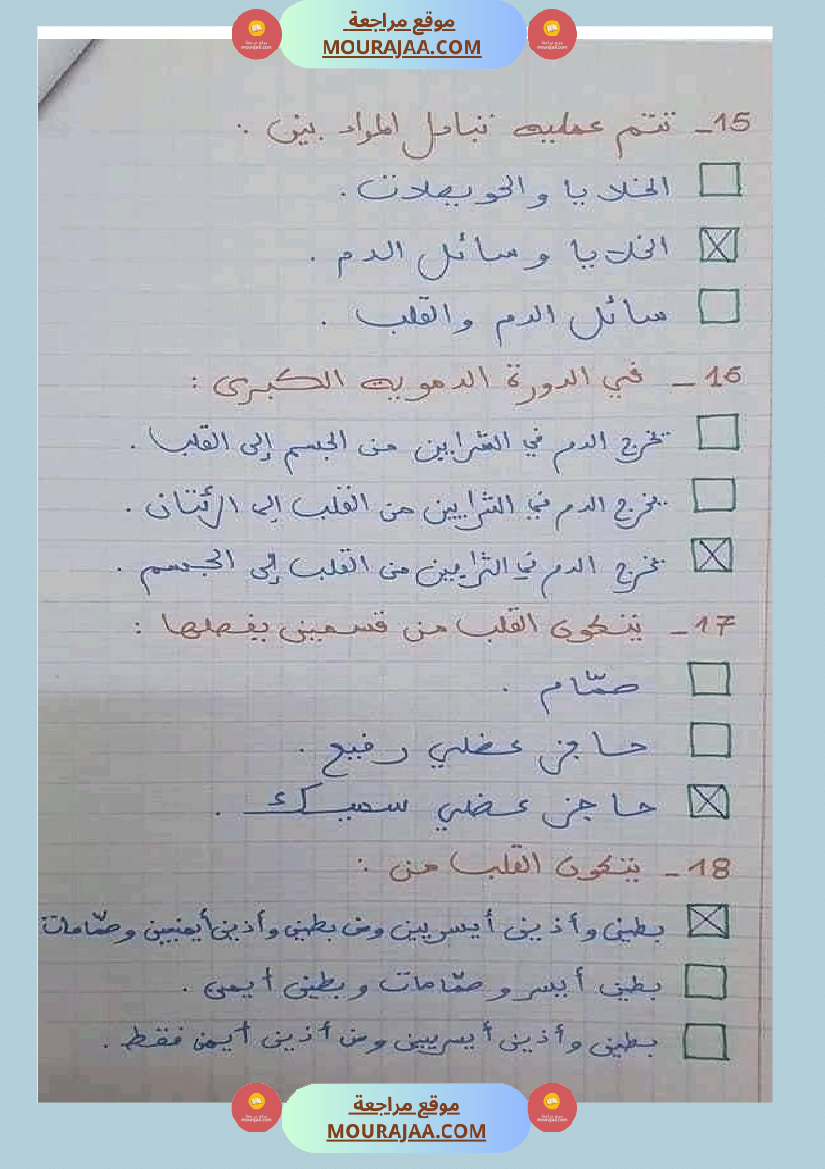 موقع مراجعة
MOURAJAA.COM
15_ تتم عملية تبادل المواد بين :
الخلايا والحويصلات .
الخلايا وسائل الدم .
سائل الدم والقلب .
16 _ في الدورة الدموية الكبرى :
يخرج الدم في الشرايين من الجسم إلى القلب .
يخرج الدم في الشرايين من القلب إلى الرئتان .
يخرج الدم في الشرايين من القلب إلى الجسم .
17_ يتكون القلب من قسمين يفصلها :
صمّام .
حاجز عضلي رفيع .
حاجز عضلي سميك .
18_ يتكون القلب من :
بطين وأذين أيسريين ومن بطين وأذين أيمنين وصمّامات
بطين أيسر وصمّامات وبطين أيمن .
بطين وأذين أيسريين ومن أذين أيمن فقط .
موقع مراجعة
MOURAJAA.COM